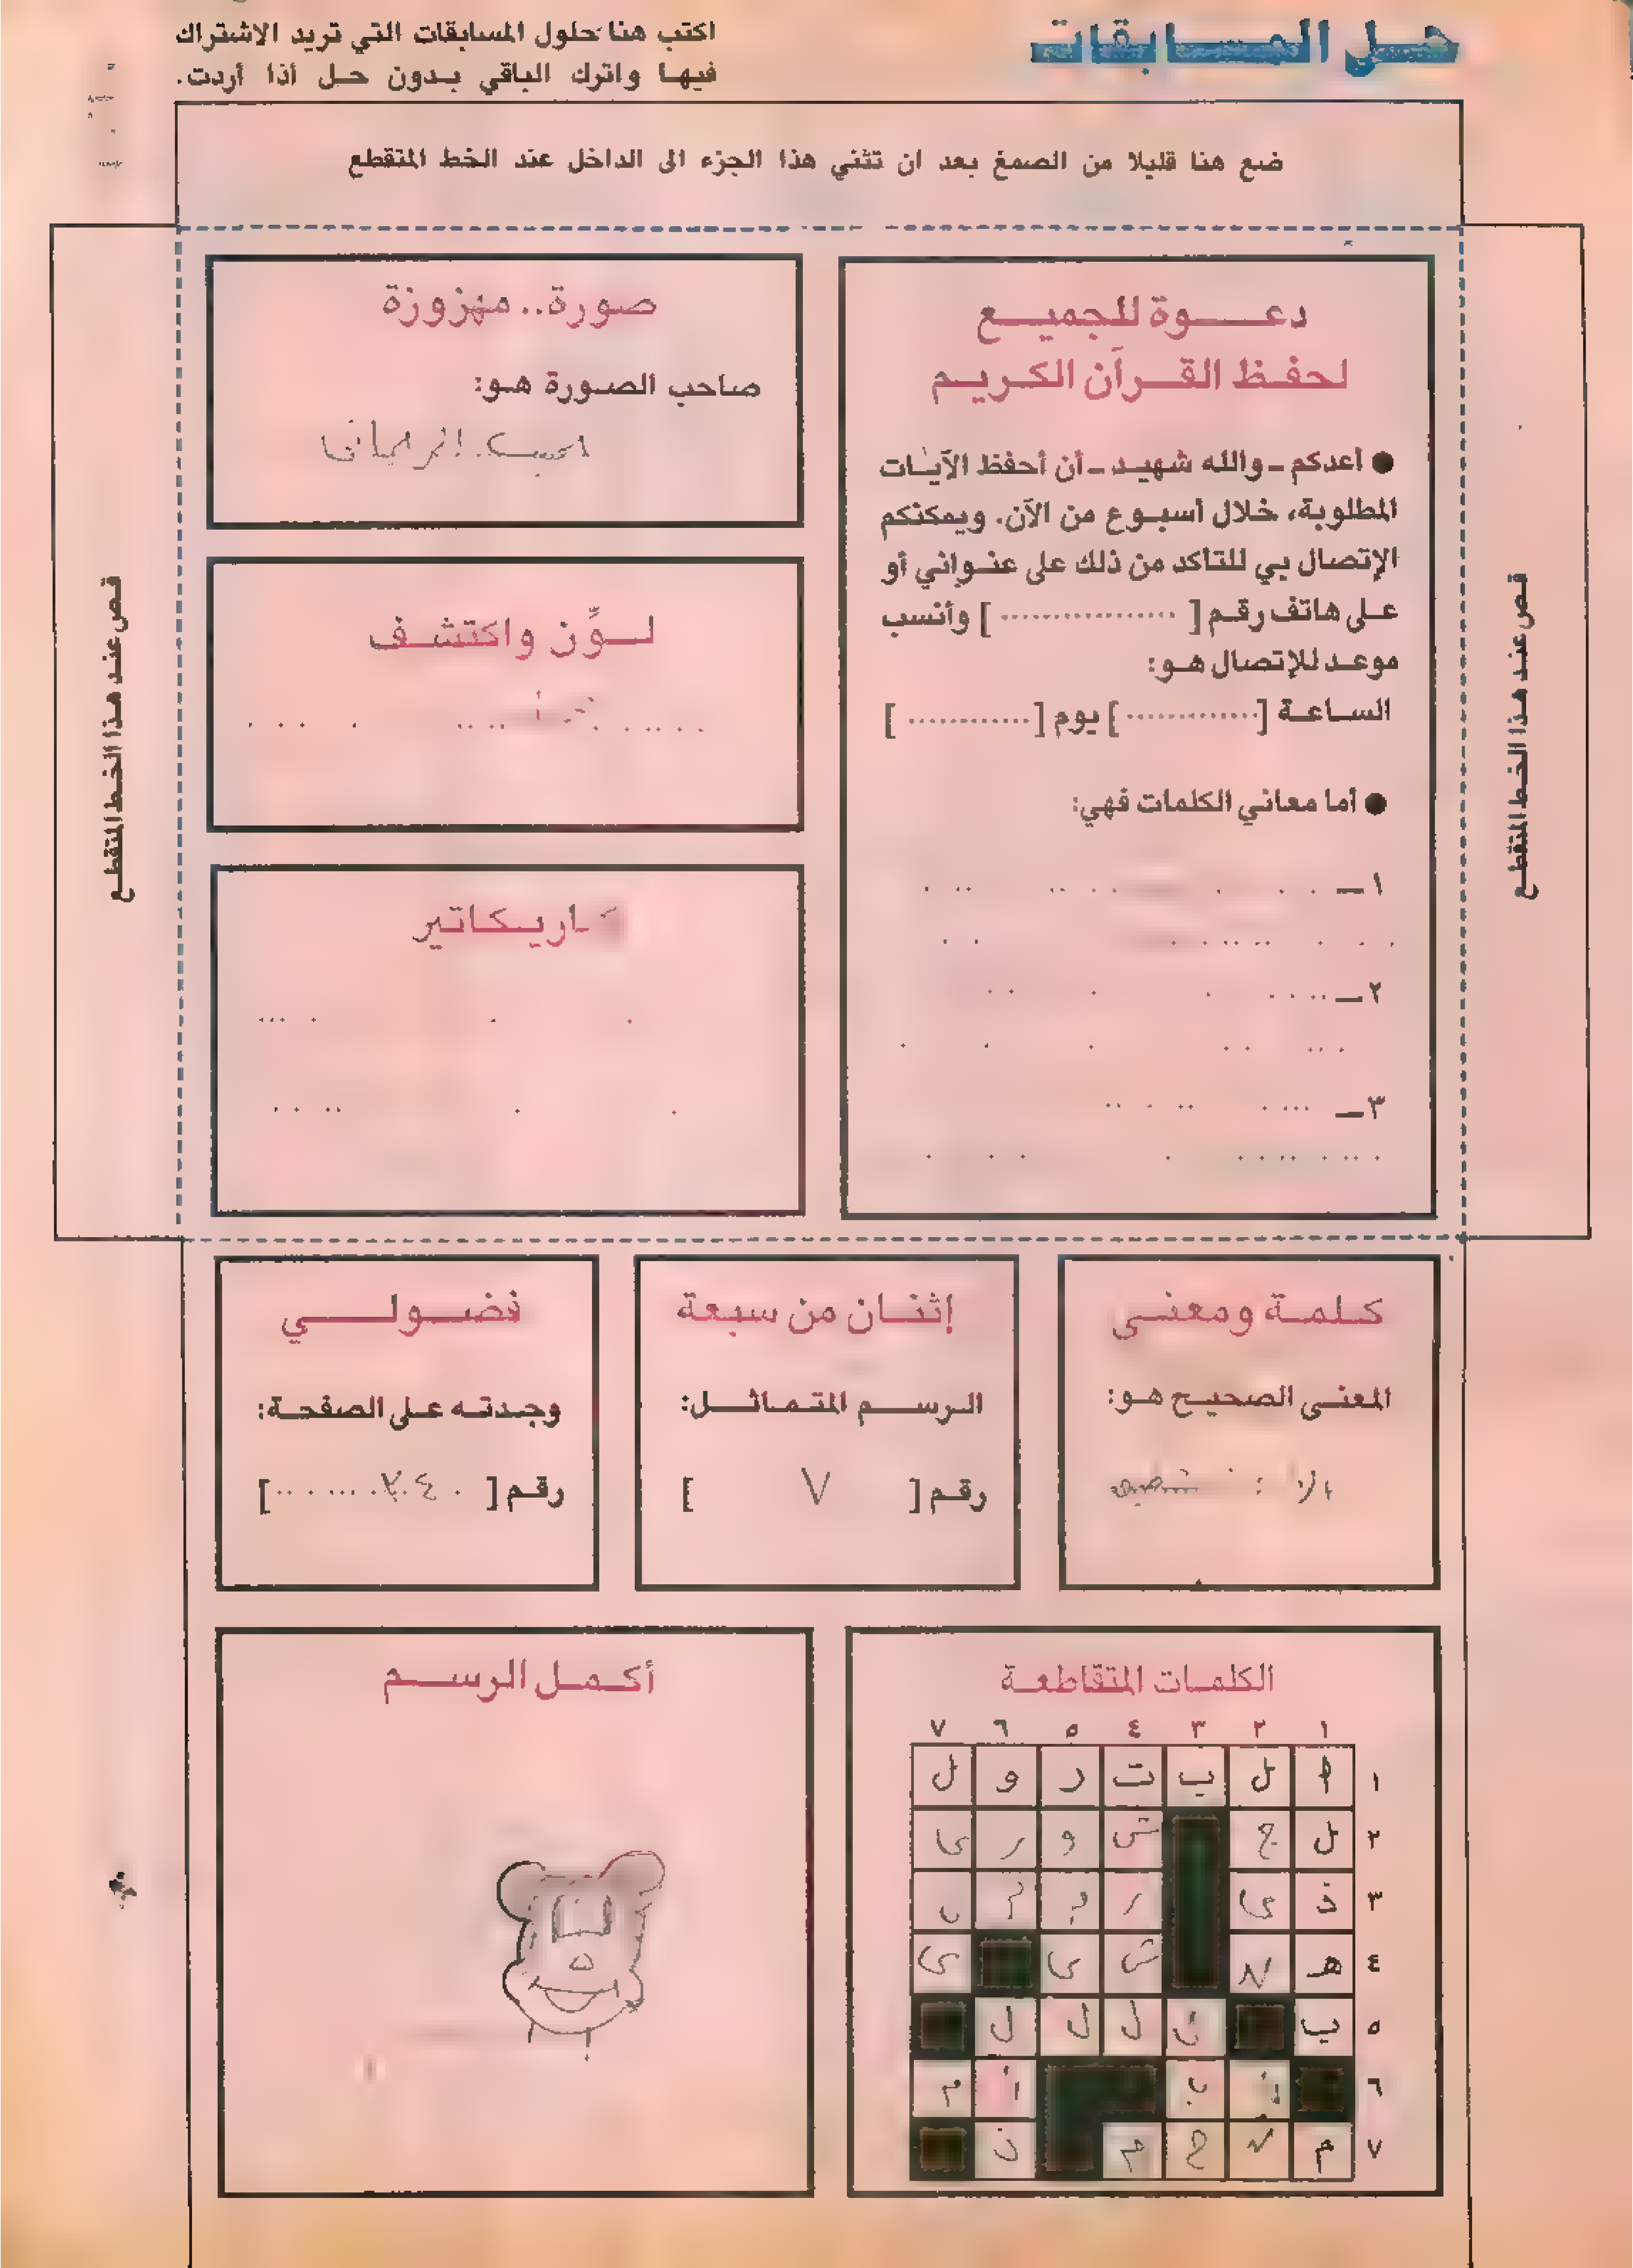 حل المسابقات
اكتب هنا حلول المسابقات التي تريد الاشتراك
فيها واترك الباقي بدون حل أذا أردت.
ضع هنا قليلا من الصمغ بعد ان تثني هذا الجزء الى الداخل عند الخط المتقطع
قص عند هذا الخط المتقطع
دعوة للجميع
لحفظ القرآن الكريم
● أعدكم - والله شهيد - أن أحفظ الآيات
المطلوبة، خلال أسبوع من الآن. ويمكنكم
الإتصال بي للتأكد من ذلك على عنواني أو
على هاتف رقم [ ................. ] وأنسب
موعد للإتصال هو:
الساعة [.............] يوم [............ ]
● أما معاني الكلمات فهي:
١ـ
٢ـ
٣ـ
صورة.. مهزوزة
صاحب الصورة هو:
لوِّن واكتشف
كاريكاتير
قص عند هذا الخط المتقطع
كلمة ومعنى
المعنى الصحيح هو:
إثنان من سبعة
الرسم المتماثل:
رقم [ ٧ ]
فضولي
وجدته على الصفحة:
رقم [ ]
الكلمات المتقاطعة
١ ٢ ٣ ٤ ٥ ٦ ٧
١ ا ل ب ت ر و ل
٢ ل ج ش و ر ى
٣ ذ ي ر
٤ هـ ش ي ي
٥ ب ن ل ل ل
٦ ا م
٧ م ح م ن
أكمل الرسم